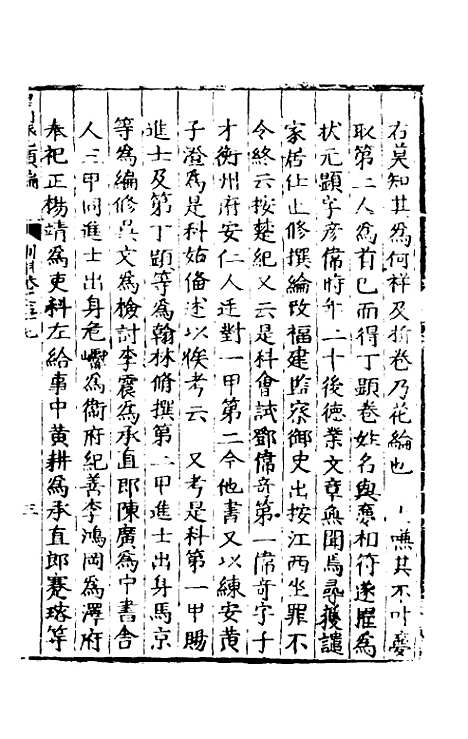 右莫知其為何祥及拆卷乃花綸也 上嫌其不叶夢
取第二人為首已而得丁顯卷姓名與夢相符遂擢為
狀元顯字彥偉時年二十後德業文章無聞焉尋獲譴
家居仕止修撰綸改福建監察御史出按江西坐罪不
令終云按楚紀又云是科會試鄧偉奇第一偉奇字子
才衡州府安仁人廷對一甲第二今他書又以練安黃
子澄為是科姑備述以俟考云 又考是科第一甲賜
進士及第丁顯等為翰林修撰第二甲進士出身馬京
等為編修吳文為檢討李震為承直郎陳廣為中書舍
人三甲同進士出身危瓛為衛府紀善李鴻岡為澤府
奉祀正楊靖為吏科左給事中黃耕為承直郎蹇瑢等
三